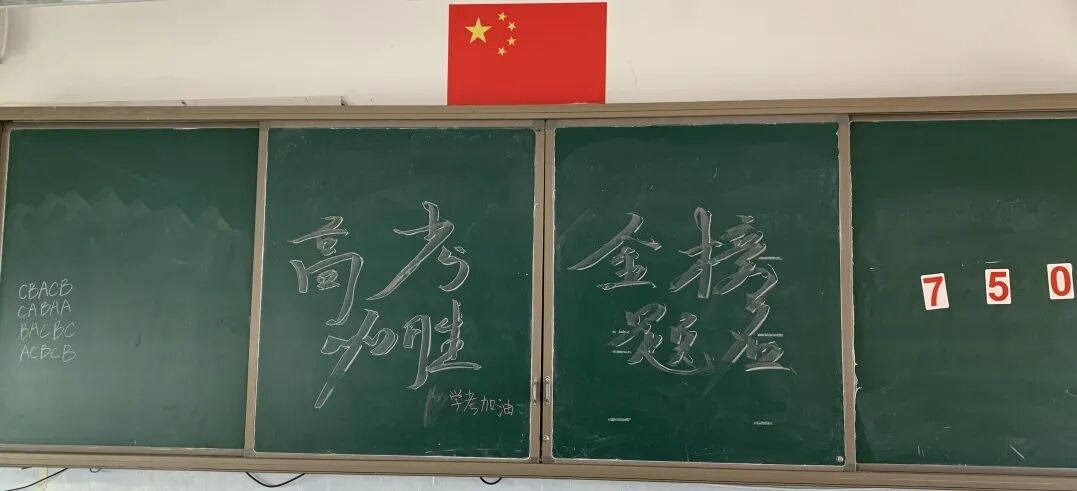 CBACB
CABAA
BACBC
ACBCB
高考
必胜
学考加油
金榜
题名
750